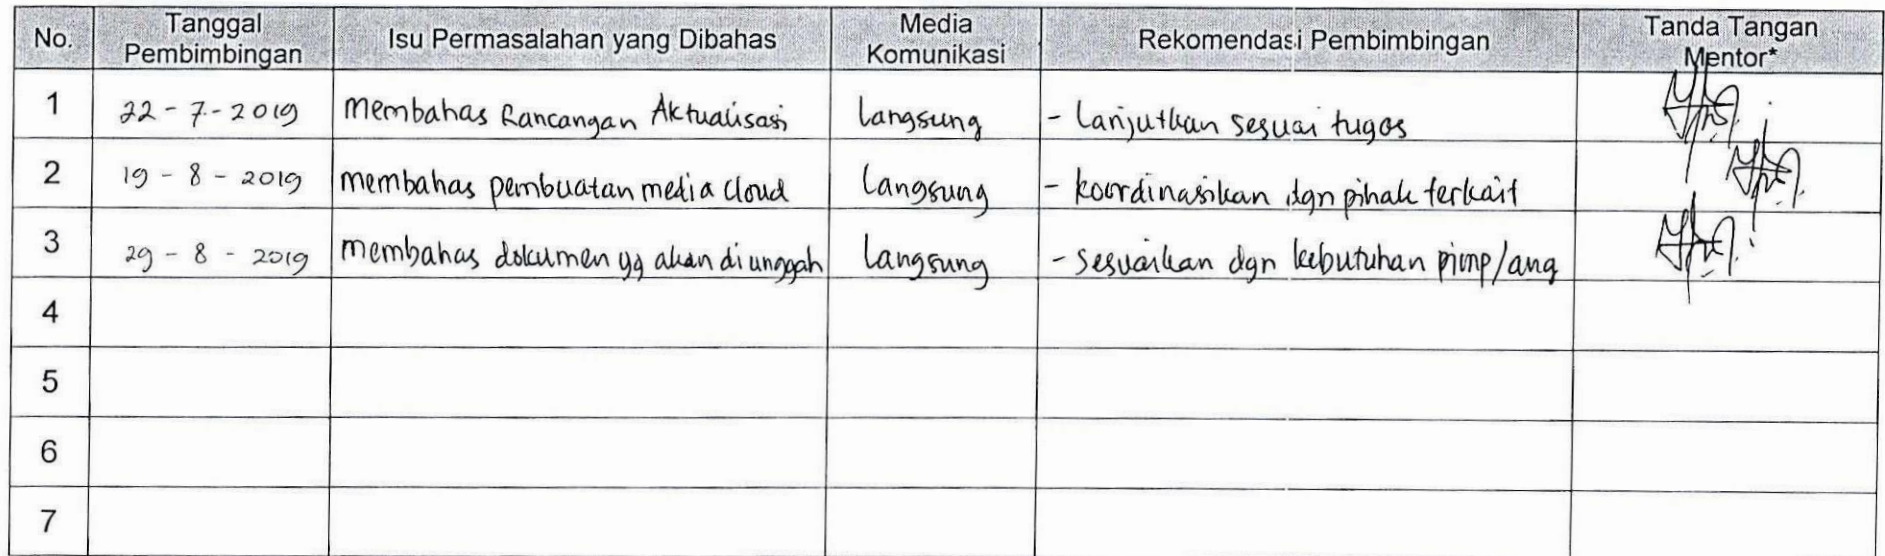 No. Tanggal Pembimbingan Isu Permasalahan yang Dibahas Media Komunikasi Rekomendasi Pembimbingan Tanda Tangan Mentor*
1 22 - 7 - 2019 Membahas Rancangan Aktualisasi Langsung - Lanjutkan sesuai tugas
2 19 - 8 - 2019 membahas pembuatan media cloud Langsung - koordinasikan dgn pihak terkait
3 29 - 8 - 2019 membahas dokumen yg akan diunggah Langsung - sesuaikan dgn kebutuhan pimp/ang
4
5
6
7